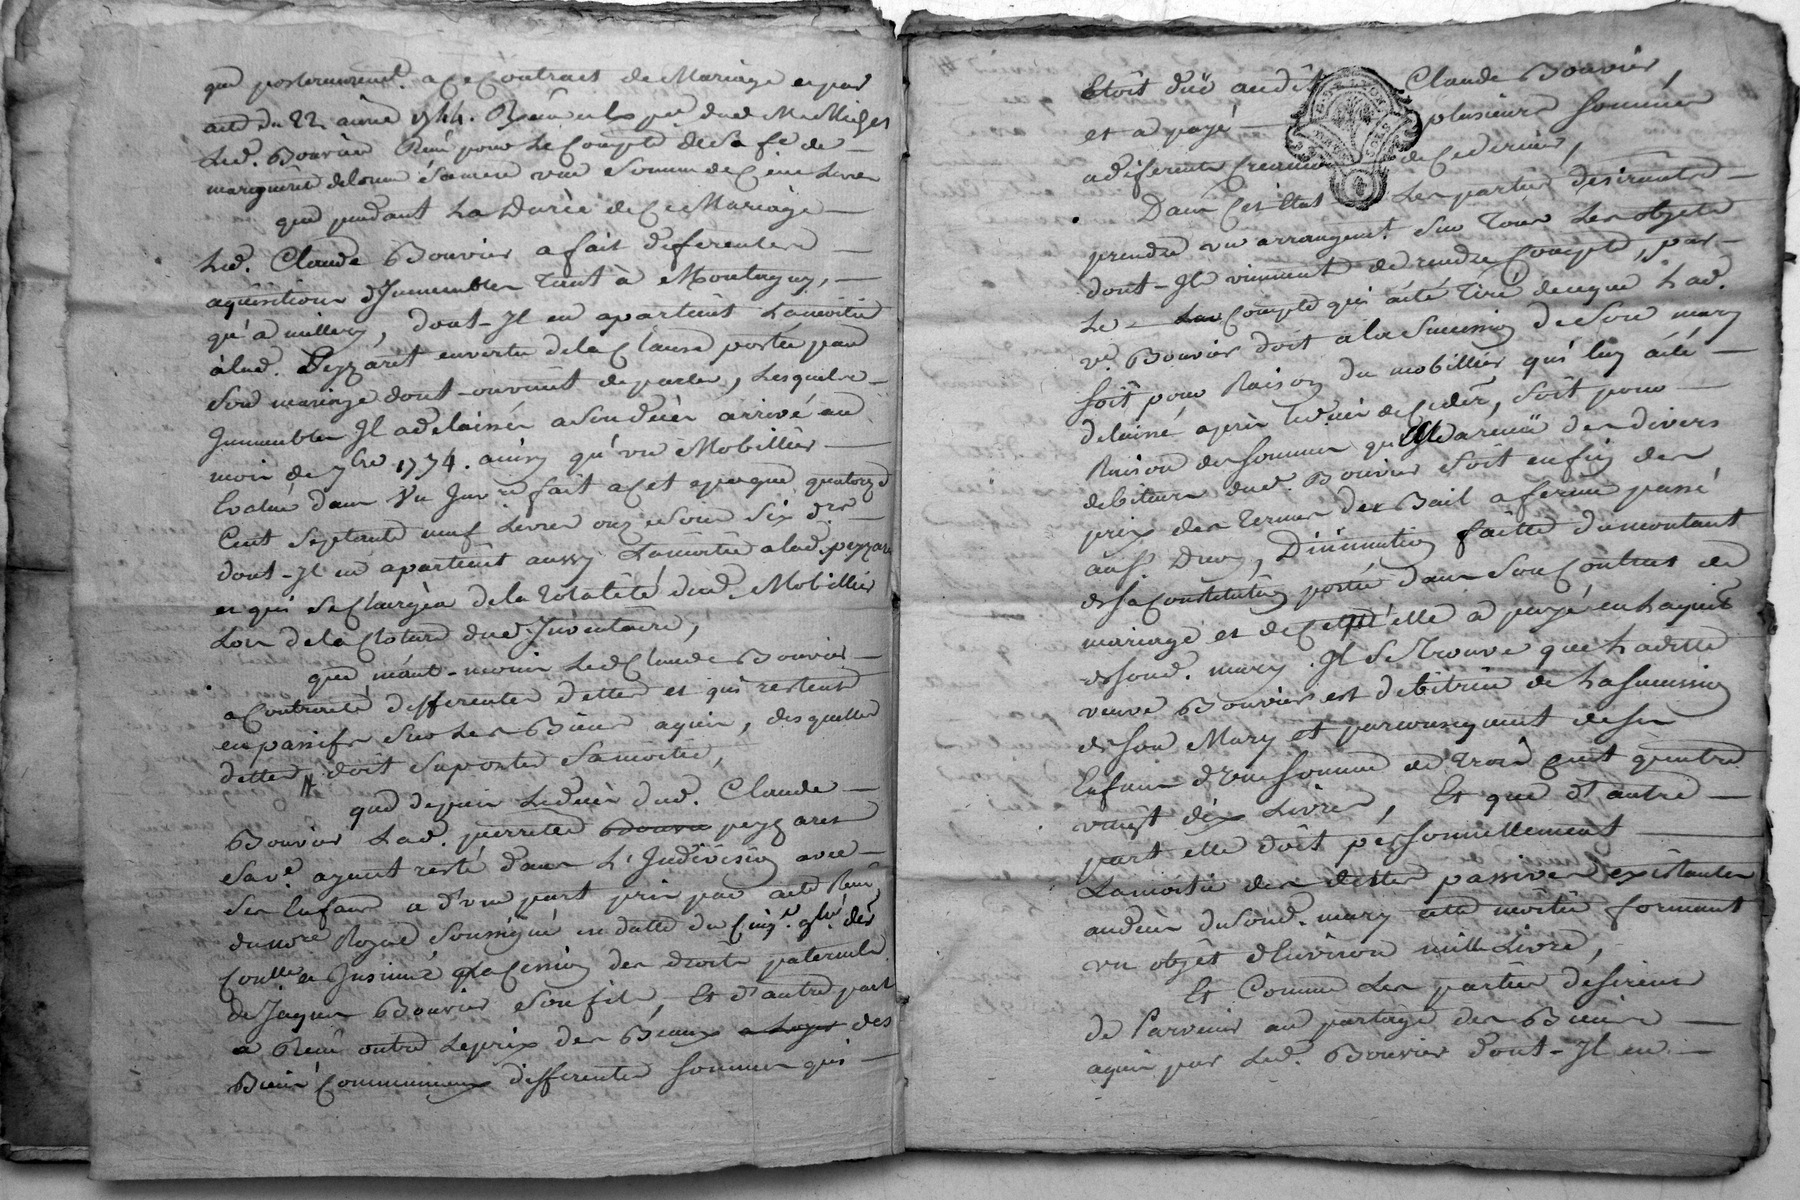 que posterieuremt. a ce Contrat de Mariage et par
acte du 22 avril 1744. Reçu
Led. Bouvier Reçut pour le Compte de sa fe. de
marguerite delorme sa mere une somme de Cent Livres
que pendant La Durée de Ce Mariage
Led. Claude Bouvier a fait diferentes
aquisitions d'Immeubles Tant à Montagny,
qu'a millery, dont-Il en apartient Lamoitié
àlad. Peyzaret envertu dela Clause portée par
son mariage dont-onvient deparler, Lesquels
Immeubles Il adelaissés asondécès arrivé au
mois de 7bre 1774. ainsy qu'un Mobillier
Evalué dans Un Inv.re fait acet epoque quatorze
Cent Septante neuf Livres onze sous Six d.rs
dont-Il en apartient aussy Lamoitié alad. peyzaret
et qui seChargea dela totalité dud. Mobillier
Lors dela Cloture dud. Inventaire,
que néant-moins Led Claude Bouvier
aContracté differentes dettes et qui restent
en passifs sur Les Biens aquis, desquelles
dettes doit suporter Samoitié,
que depuis Ledécès dud. Claude
Bouvier Lad. pierrette Bouvie peyzaret
save. ayant resté dans L'Indivision avec
ses Enfans a d'une part pris par acte Reçu
dunore. Royal soussigné en datte du Cinq. 9bre. der
Conlle. et Insinué LaCession des droits paternels
de Jaques Bouvier sonfils, Et d'autre part
a Reçu outre Leprix des Beaux a Loyer des
Biens Communaux differentes sommes qui
Etoit düe audit Claude Bouvier,
et a payé plusieurs sommes
adiferents Creanciers de Cedernier,
Dans Cet Etat Les parties desirantes
prendre un arrangemt. sur Tous Les objets
dont-Il viennent de rendre Compte, par
Le Compte qui aété Tiré deceque Lad.
ve. Bouvier doit ala Succession deSon mary
soit pour Raison du mobillier qui luy aété
delaissé après ledécès deCeder., Soit pour
Raison des sommes quElle areçüe des divers
debiteurs dud. Bouvier Soit enfin des
prix des termes des Bail a ferme passé
aus.r Duvy, Diminution faitte dumontant
desaConstitution portée dans son Contrat de
mariage et deCequ'elle a payé en Laquit
deSond. mary. Il seTrouve que Laditte
veuve Bouvier est debitrice de LaSuccession
deSon Mary et parconsequent deses
Enfans d'une somme de Trois Cent quatre
vingt dix Livres, Et que d'autre
part elle doit personnellement
Lamoitié des dettes passives existantes
audécès duSond. mary cette moitié formant
un objet d'Environ mille Livre,
Et Comme Les parties desirent
de Parvenir au partage des Biens
aquis par Led. Bouvier dont-Il en